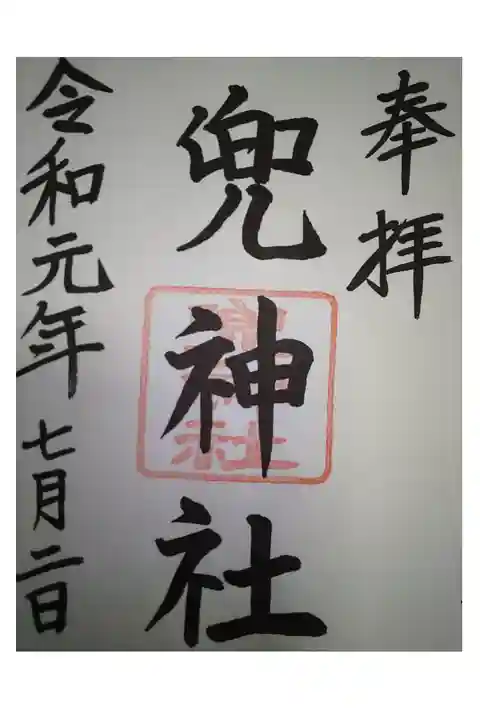 奉拝
兜神社
兜神社
令和元年七月二日